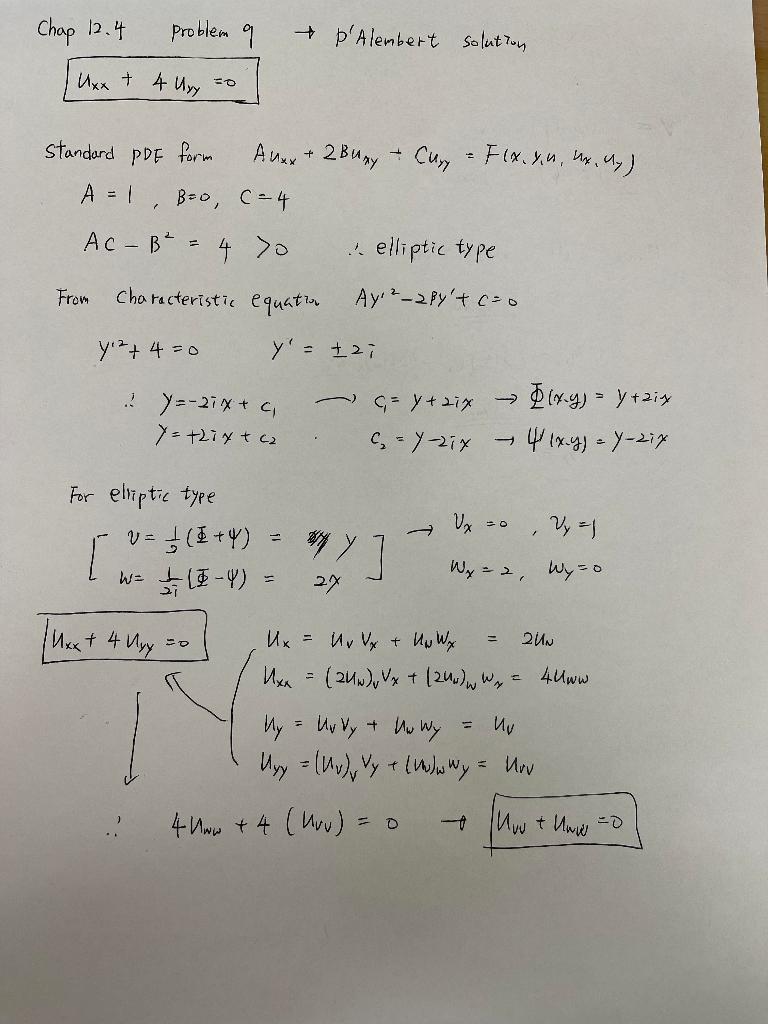 Chap 12.4 problem 9 → D'Alembert solution
Uxx + 4 Uyy = 0
Standard PDE form Auxx + 2Buxy + Cuyy = F(x, y, u, ux, uy)
A = 1, B=0, C=4
AC - B² = 4 > 0 ∴ elliptic type
From Characteristic equation Ay'² - 2By' + C = 0
y'² + 4 = 0 y' = ±2i
∴ y = -2ix + c₁ → c₁ = y + 2ix → Φ(x,y) = y + 2ix
y = +2ix + c₂ c₂ = y - 2ix → Ψ(x,y) = y - 2ix
For elliptic type
v = 1/2 (Φ + Ψ) = y → Vx = 0, Vy = 1
w = 1/2i (Φ - Ψ) = 2x Wx = 2, Wy = 0
Uxx + 4 Uyy = 0
Ux = Uv Vx + Uw Wx = 2Uw
Uxx = (2Uw)v Vx + (2Uw)w Wx = 4Uww
Uy = Uv Vy + Uw Wy = Uv
Uyy = (Uv)v Vy + (Uv)w Wy = Uvv
∴ 4Uww + 4 (Uvv) = 0 → Uvv + Uww = 0